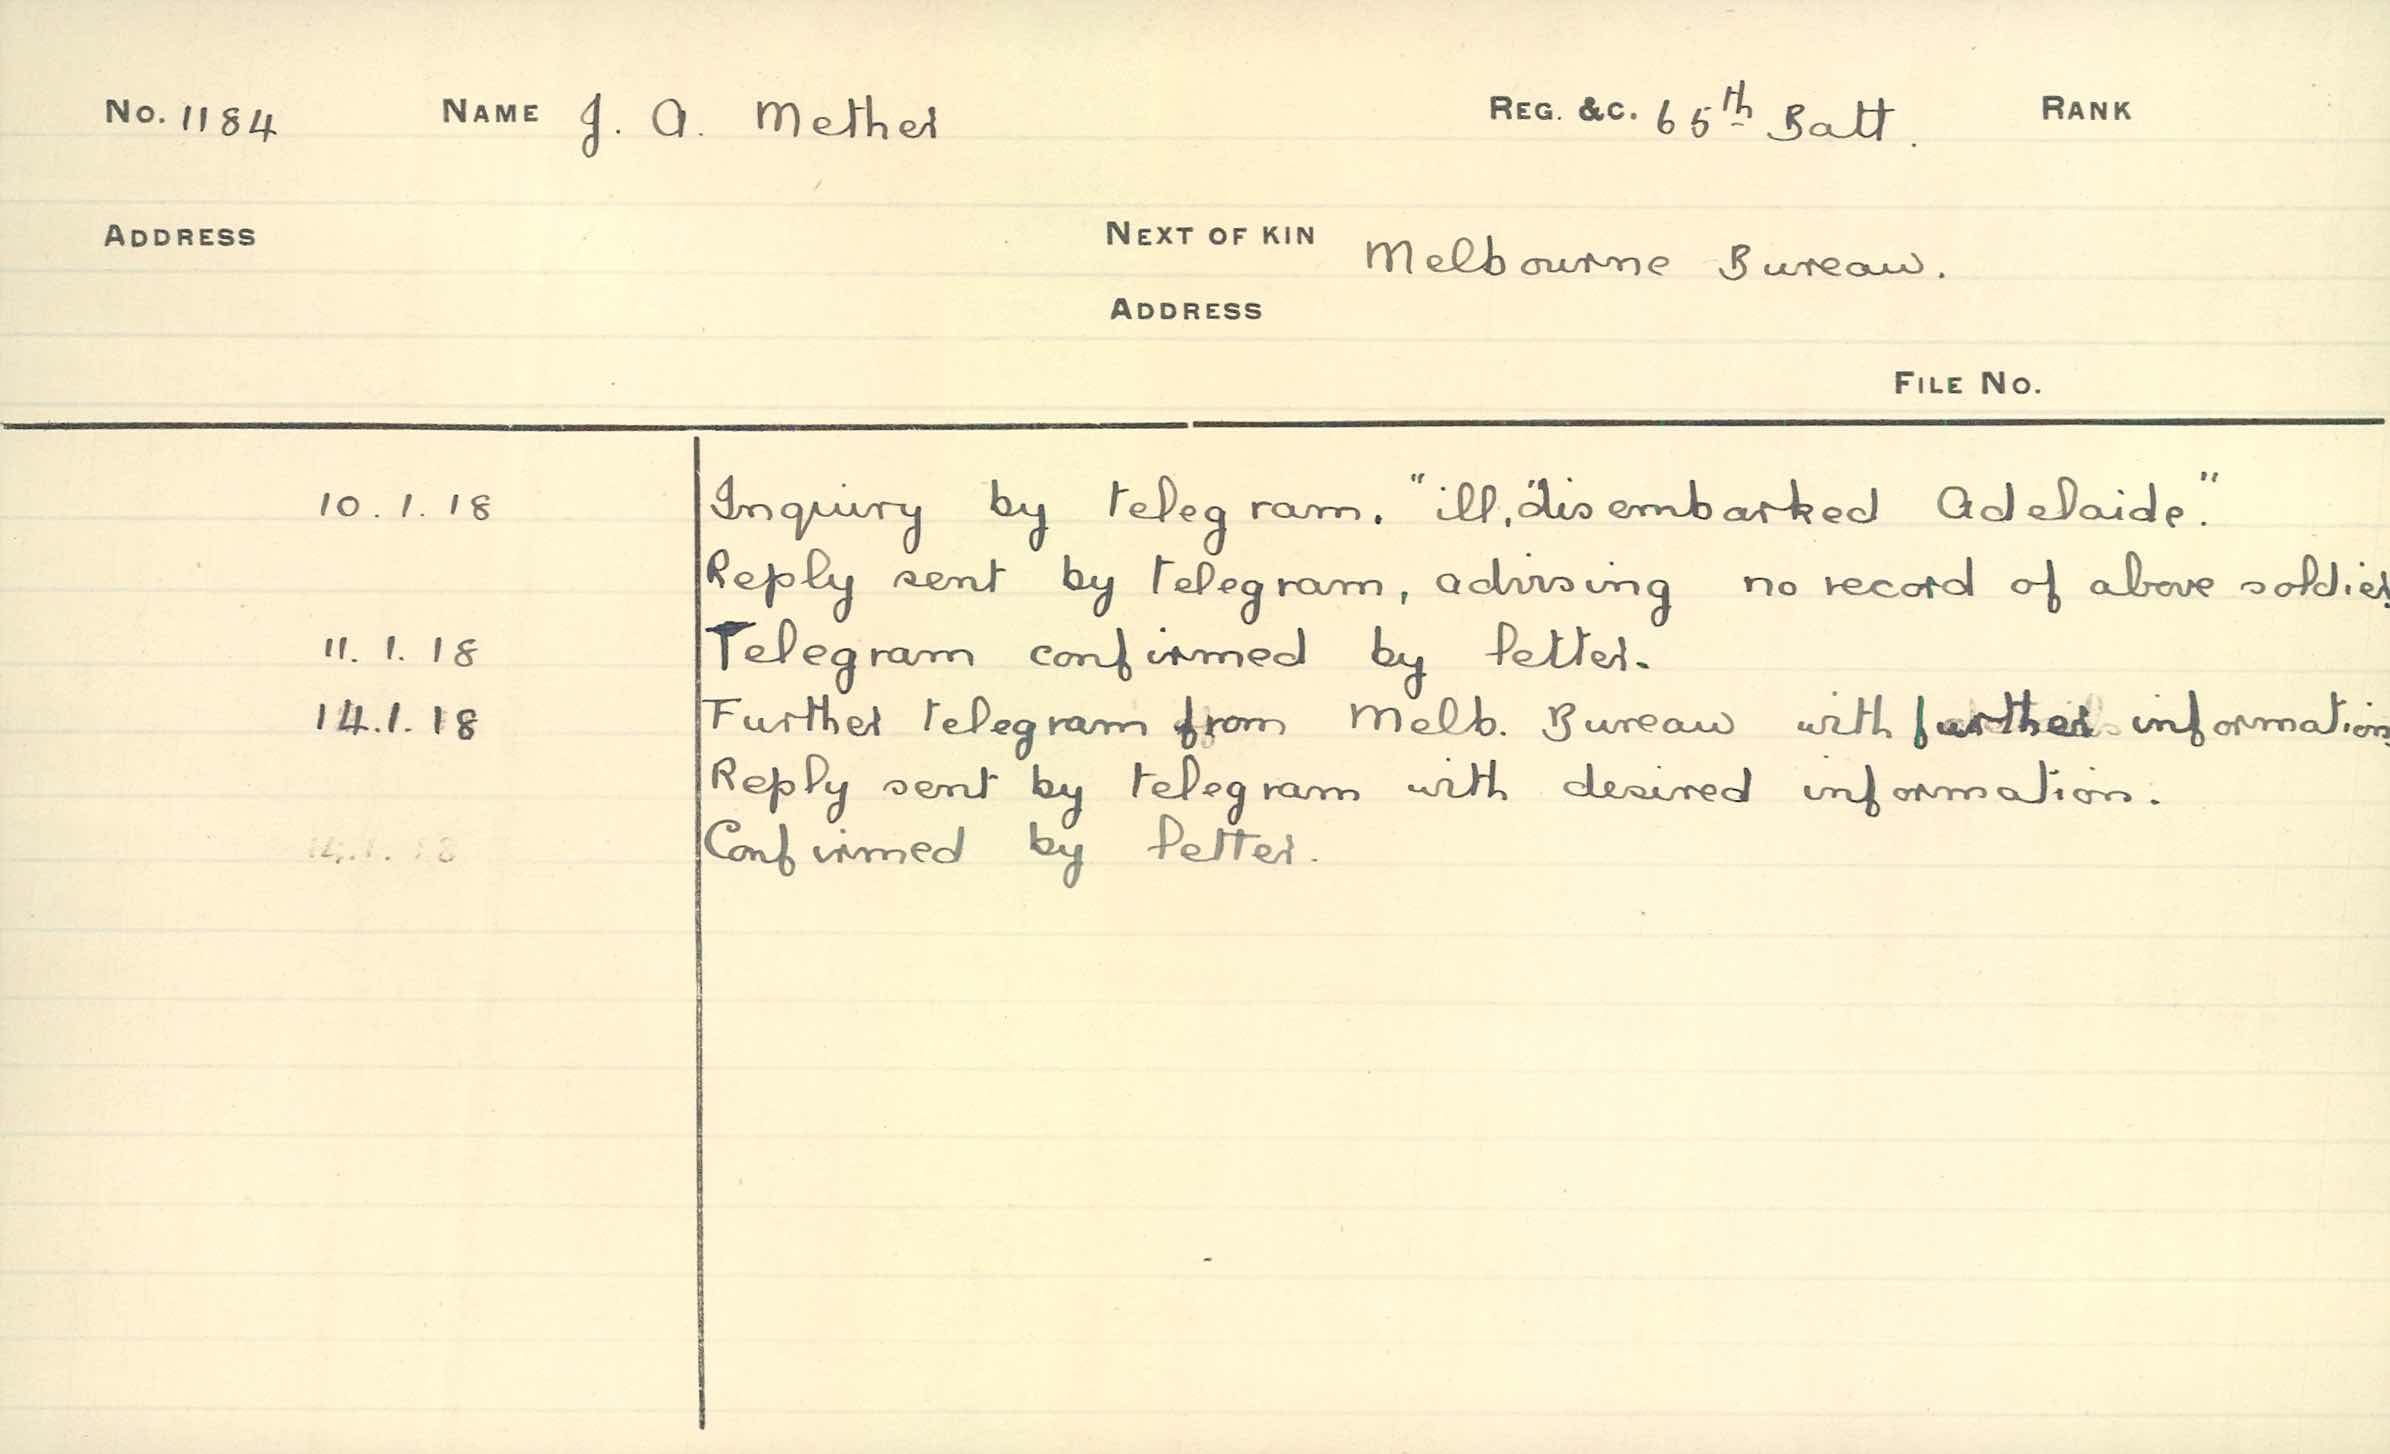 No. 1184 NAME J. A. Mether REG. &C. 65th Batt. RANK
ADDRESS NEXT OF KIN Melbourne Bureau.
ADDRESS
FILE No.
10.1.18 Inquiry by telegram. "ill, disembarked Adelaide."
Reply sent by telegram, advising no record of above soldier
11.1.18 Telegram confirmed by letter.
14.1.18 Further telegram from Melb. Bureau with further information
Reply sent by telegram with desired information.
14.1.18 Confirmed by letter.